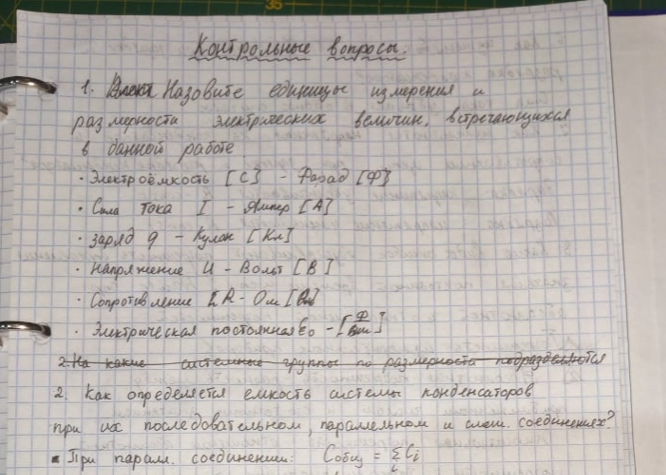 Контрольные вопросы.
1. Назовите единицы измерения и
размерности электрических величин, встречающихся
в данной работе
· Электроёмкость [C] - Фарад [Ф]
· Сила тока I - Ампер [А]
· Заряд q - Кулон [Кл]
· Напряжение U - Вольт [В]
· Сопротивление R - Ом [Ом]
· Электрическая постоянная ε₀ - [Ф/м]
2. На какие системные группы по размерности подразделяются
2. Как определяется емкость системы конденсаторов
при их последовательном, параллельном и смеш. соединениях?
· При парал. соединении: Cобщ = ∑ Ci
i